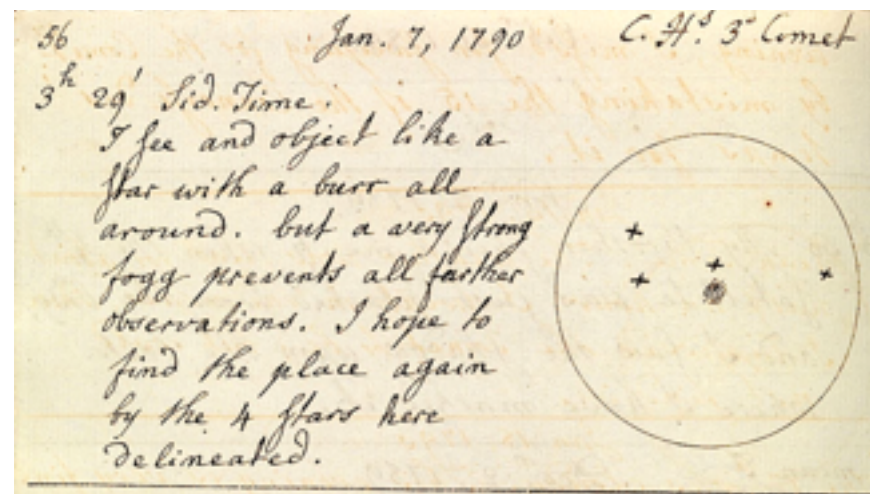 56 Jan. 7, 1790 C. H's. 3d Comet
3h 29' Sid. Time.
I see and object like a
star with a burr all
around. but a very strong
fogg prevents all further
observations. I hope to
find the place again
by the 4 stars here
delineated.